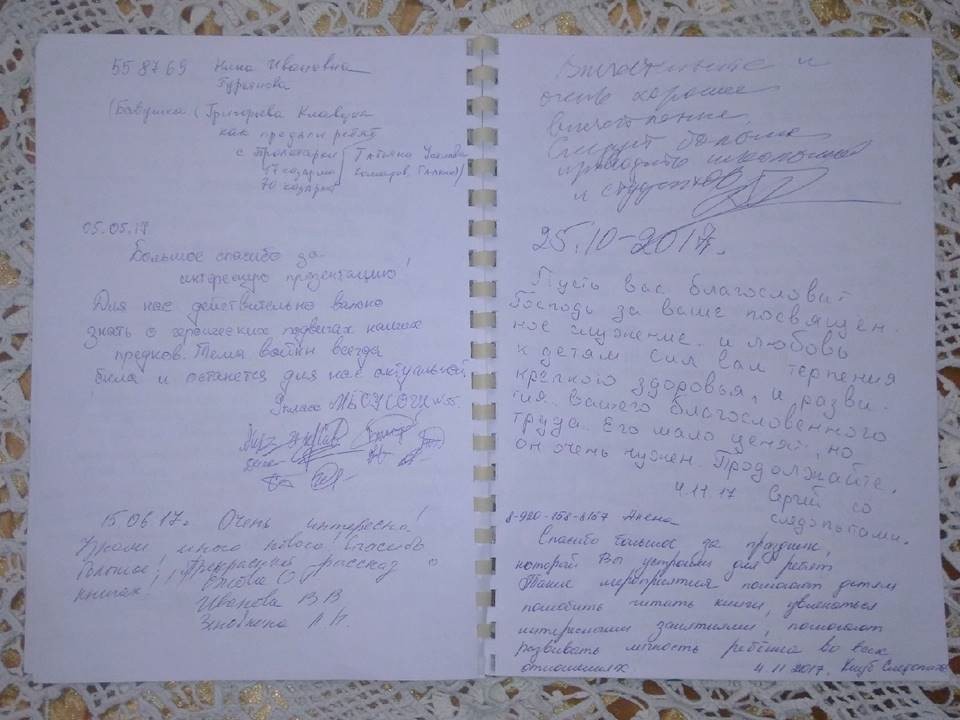 55 87 69 Нина Ивановна
(Бабушка (Григорьева Клавдия
как продали ребят
с Пролетарки Татьяна
17 казарма
70 казарма
05.05.17
Большое спасибо за
интересную презентацию!
Для нас действительно важно
знать о героических подвигах наших
предков. Тема войны всегда
была и останется для нас актуальной
9 класс
15.06.17г. Очень интересно!
Узнали много нового! Спасибо
большое! Прекрасный рассказ о
книгах!
Иванова В В
и
очень хорошее
впечатление.
Следует больше
приводить школьников
и студентов
25.10-2017г.
Пусть вас благословит
Господь за ваше посвящен
ное служение и любовь
к детям Сил вам терпения
крепкого здоровья, и разви
тия вашего благословенного
труда. Его мало ценят, но
он очень нужен. Продолжайте.
4.11.17 Сергей со
следопытами.
8-920-158-8157
Спасибо большое за праздник,
который Вы устроили для ребят
Такие мероприятия помогают детям
полюбить читать книги, увлекаться
интересными занятиями, помогают
развивать личность ребёнка во всех
отношениях. 4.11.2017. Клуб Следопыт